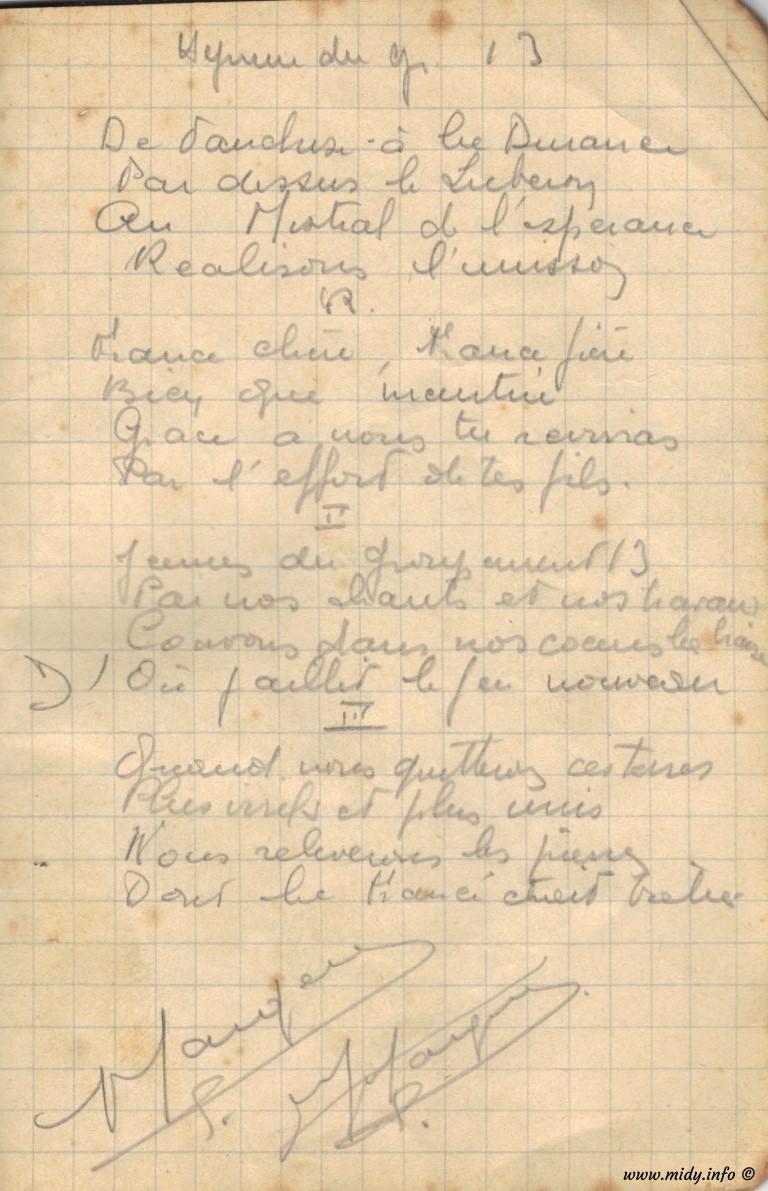 Hymne du gr. 13
De Vaucluse à la Durance
Par dessus le Luberon
Au Mistral de l'espérance
Réalisons l'unisson
R.
France chère, France fière
Bien que meurtrie
Grace a nous tu revivras
Par l'effort de tes fils.
II
Jeunes du groupement 13
Par nos chants et nos travaux
Couvons dans nos coeurs la braise
D' Où jaillit le feu nouveau
III
Quand nous quitterons ces terres
Plus virils et plus unis
Nous releverons les pierres
Dont la France était
www.midy.info ©